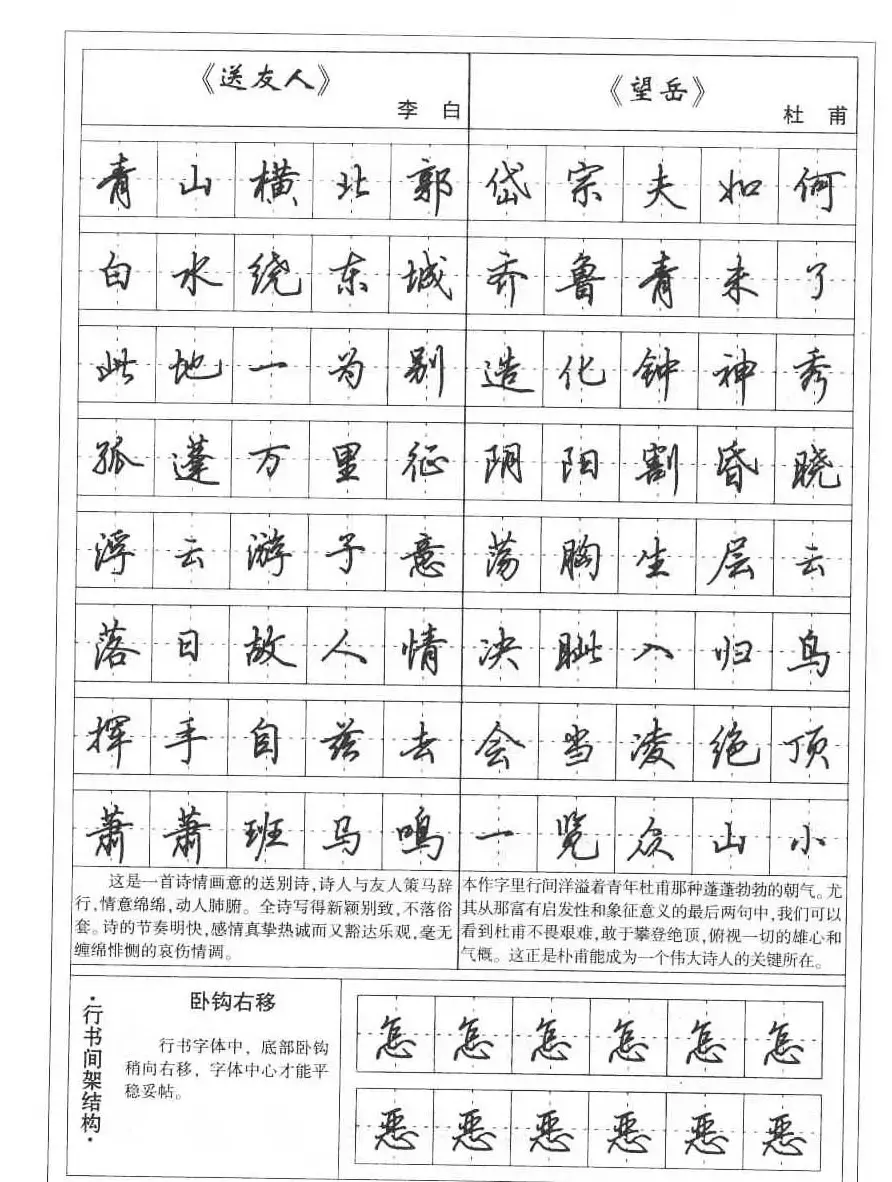 《送友人》
李 白
青山横北郭
白水绕东城
此地一为别
孤蓬万里征
浮云游子意
落日故人情
挥手自兹去
萧萧班马鸣
这是一首诗情画意的送别诗，诗人与友人策马辞
行，情意绵绵，动人肺腑。全诗写得新颖别致，不落俗
套。诗的节奏明快，感情真挚热诚而又豁达乐观，毫无
缠绵悱恻的哀伤情调。
《望岳》
杜 甫
岱宗夫如何
齐鲁青未了
造化钟神秀
阴阳割昏晓
荡胸生层云
决眦入归鸟
会当凌绝顶
一览众山小
本作字里行间洋溢着青年杜甫那种蓬蓬勃勃的朝气。尤
其从那富有启发性和象征意义的最后两句中，我们可以
看到杜甫不畏艰难，敢于攀登绝顶，俯视一切的雄心和
气概。这正是朴甫能成为一个伟大诗人的关键所在。
·行书间架结构·
卧钩右移
行书字体中，底部卧钩
稍向右移，字体中心才能平
稳妥帖。
怎怎怎怎怎怎
恶恶恶恶恶恶